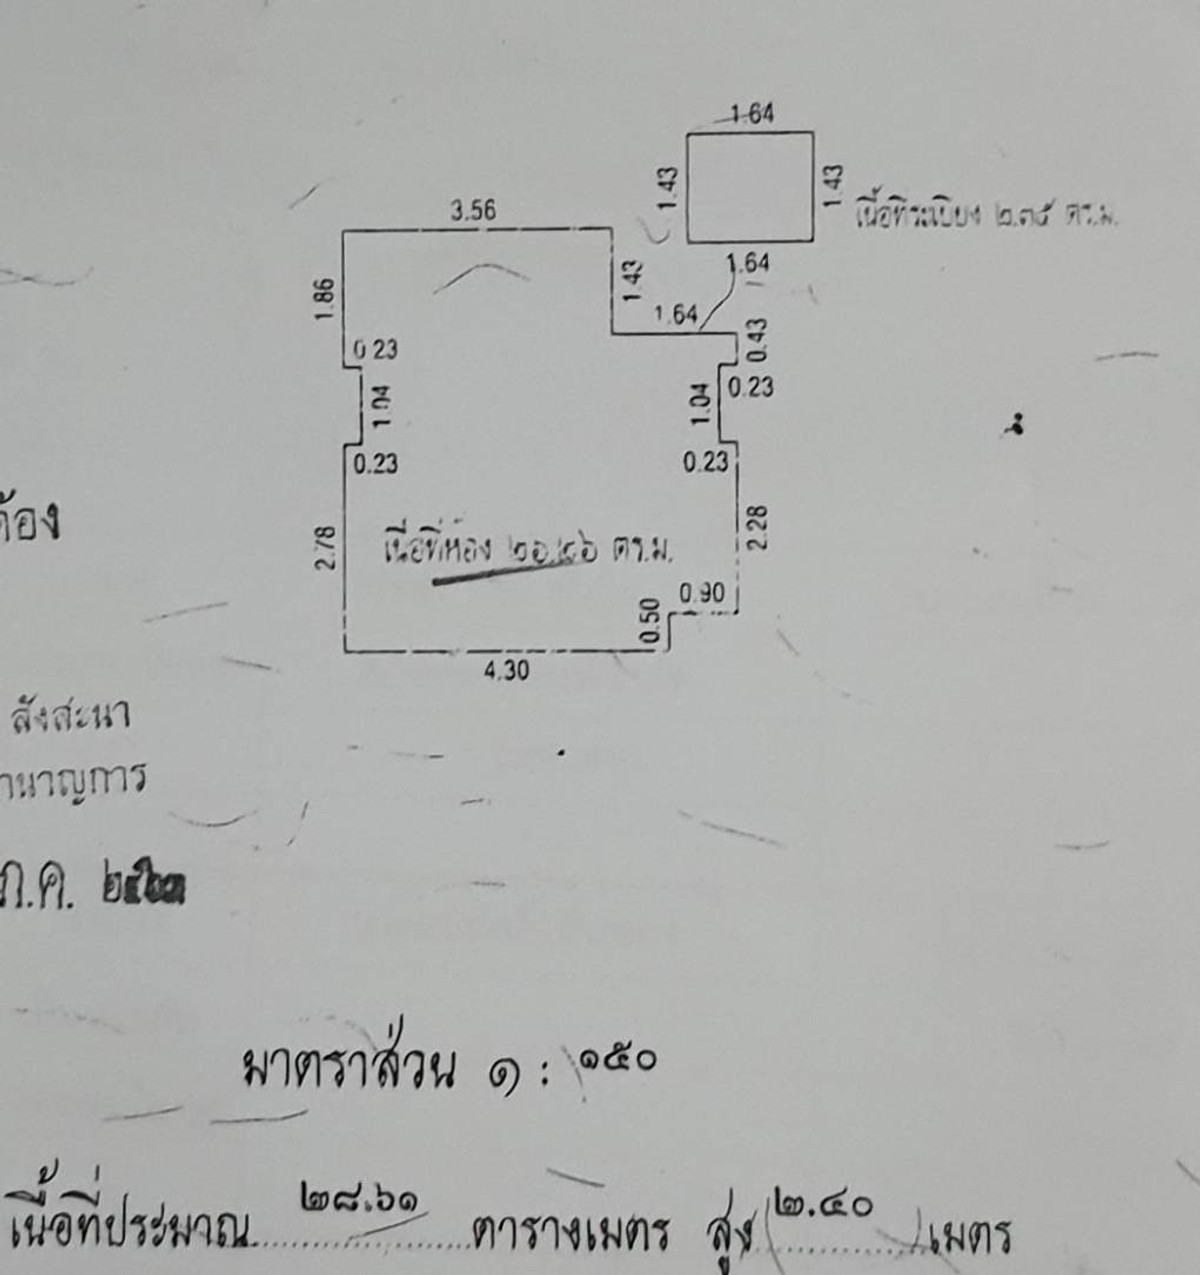 1.64
1.43
1.43
เนื้อที่ระเบียง ๒.๓๕ ตร.ม.
3.56
1.64
1.86
1.43
1.64
0.43
0 23
1.04
1.04
0.23
0.23
0.23
2.78
2.28
เนื้อที่ห้อง ตร.ม.
0.90
0.50
4.30
สังสะนา
ภ.ค.
มาตราส่วน ๑ : ๑๕๐
เนื้อที่ประมาณ ๒๘.๖๑ ตารางเมตร สูง ๒.๔๐ เมตร